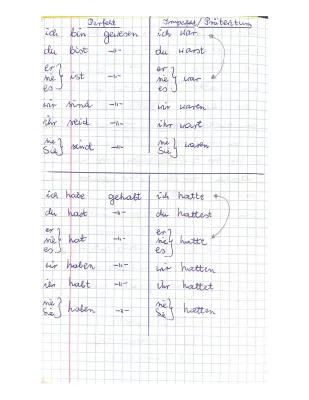 Perfekt Imperfekt/Präteritum
ich bin gewesen ich war
du bist -"- du warst
er
sie } ist -"- er sie es } war
es
wir sind -"- wir waren
ihr seid -"- ihr wart
sie
Sie } sind -"- sie Sie } waren
ich habe gehabt ich hatte
du hast -"- du hattest
er
sie } hat -"- er sie es } hatte
es
wir haben -"- wir hatten
ihr habt -"- ihr hattet
sie
Sie } haben -"- sie Sie } hatten